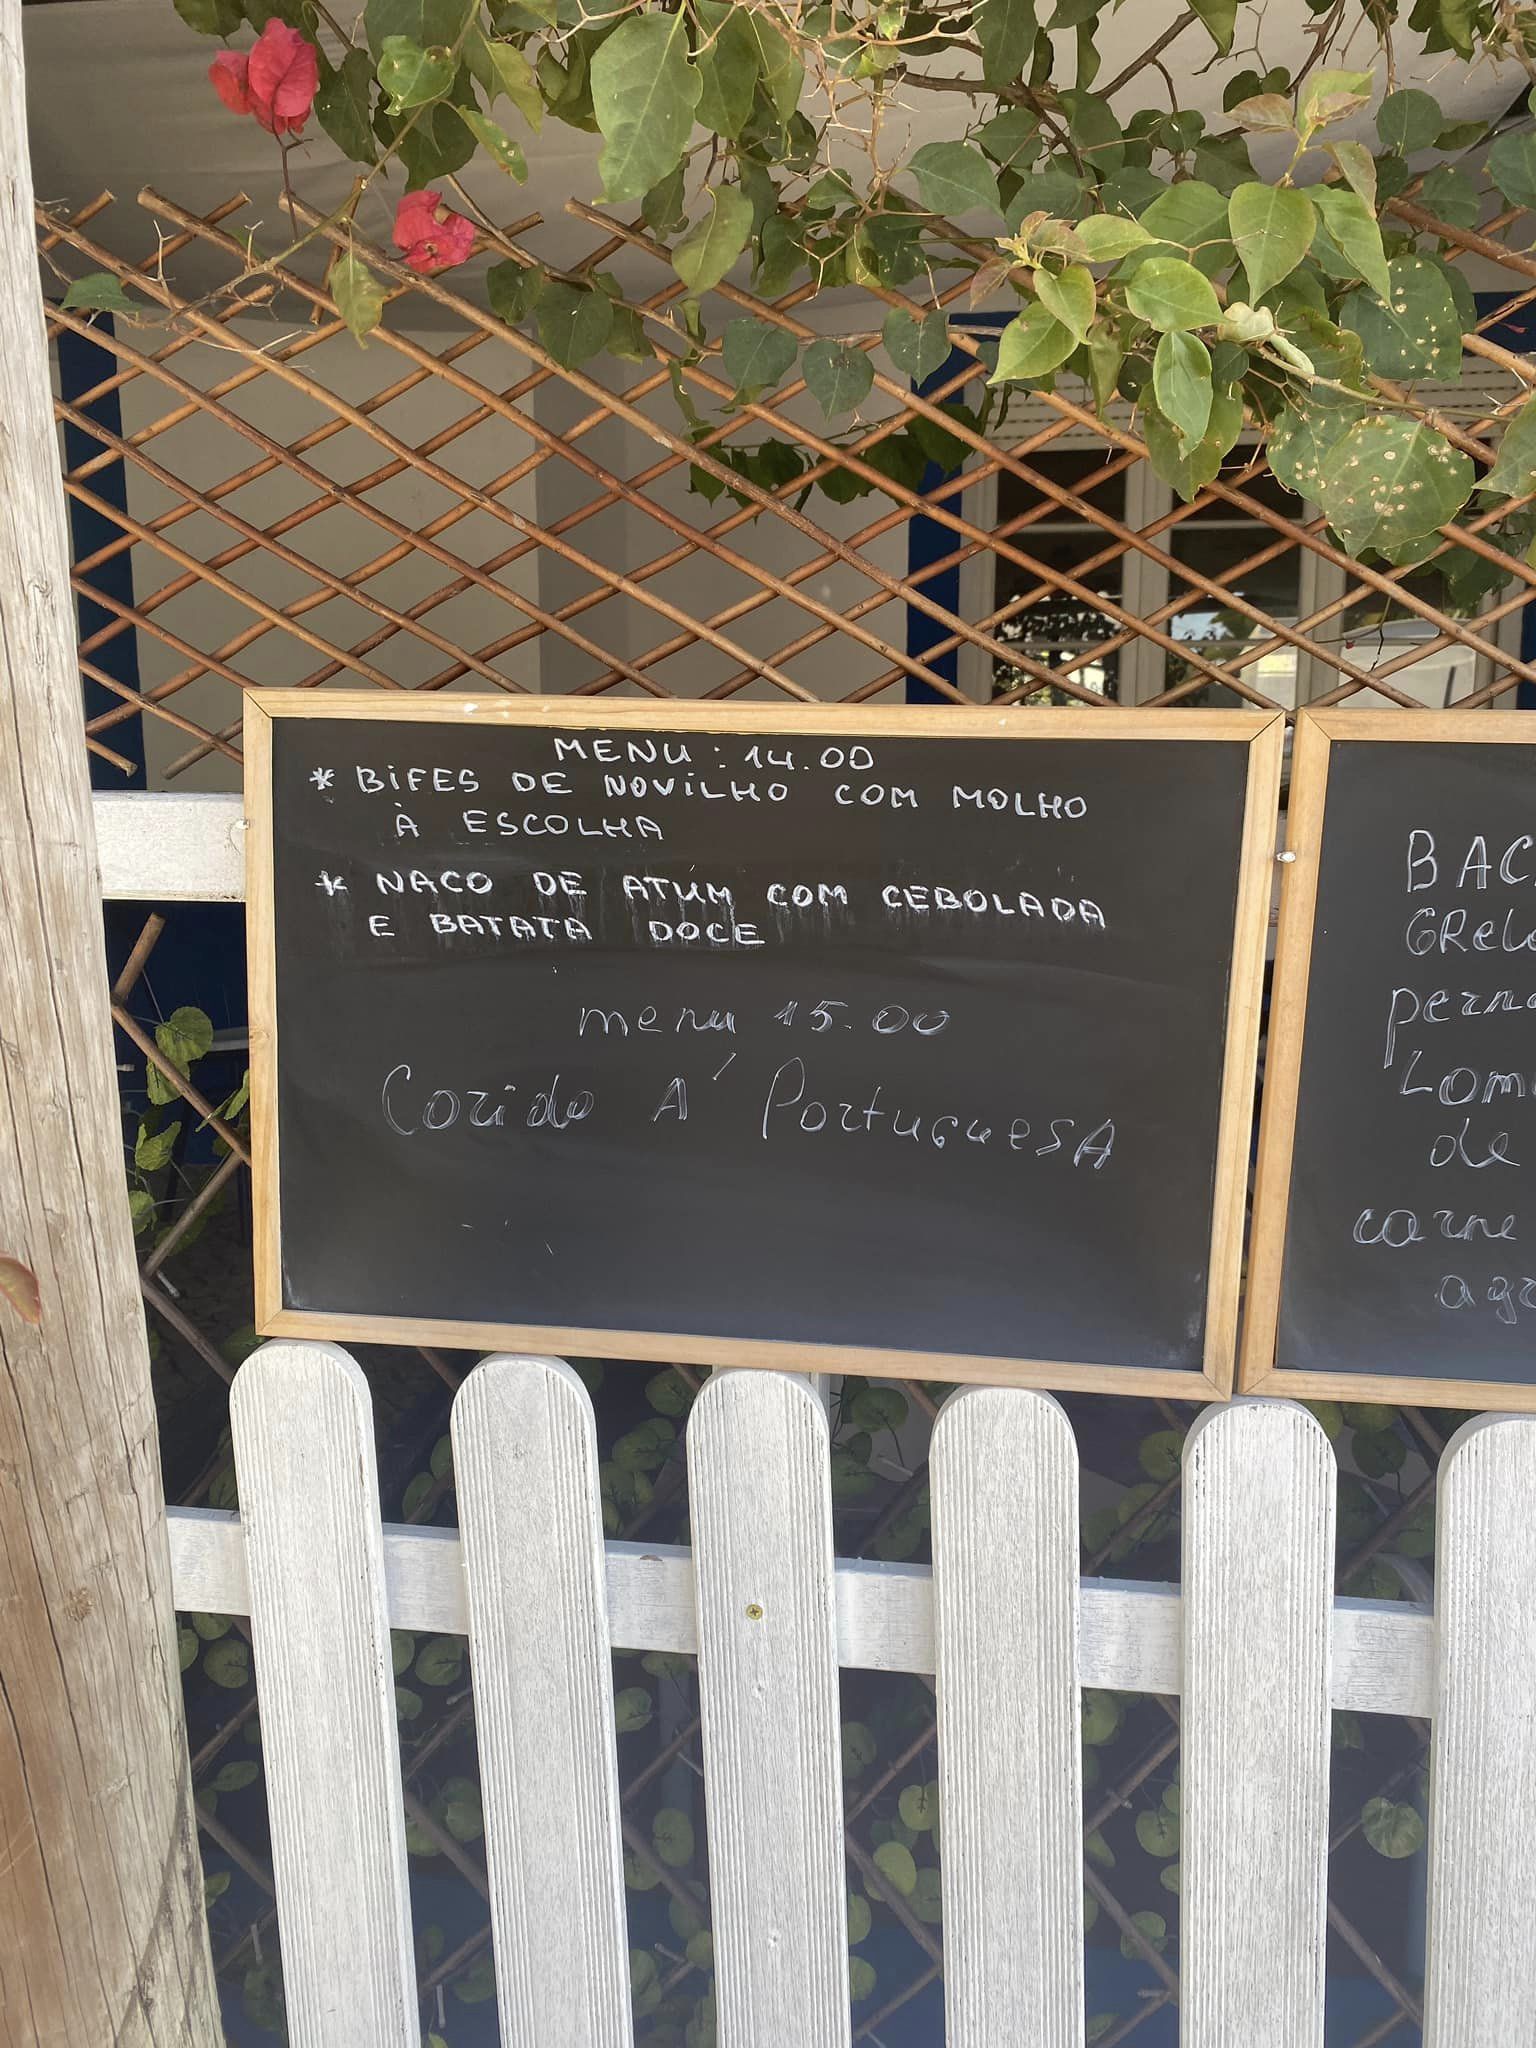 MENU : 14.00
* BIFES DE NOVILHO COM MOLHO
À ESCOLHA
* NACO DE ATÚM COM CEBOLADA
E BATATA DOCE
menu 15.00
Cozido Á Portuguesa
BAC
GRel
pern
Lom
de
carne
ag